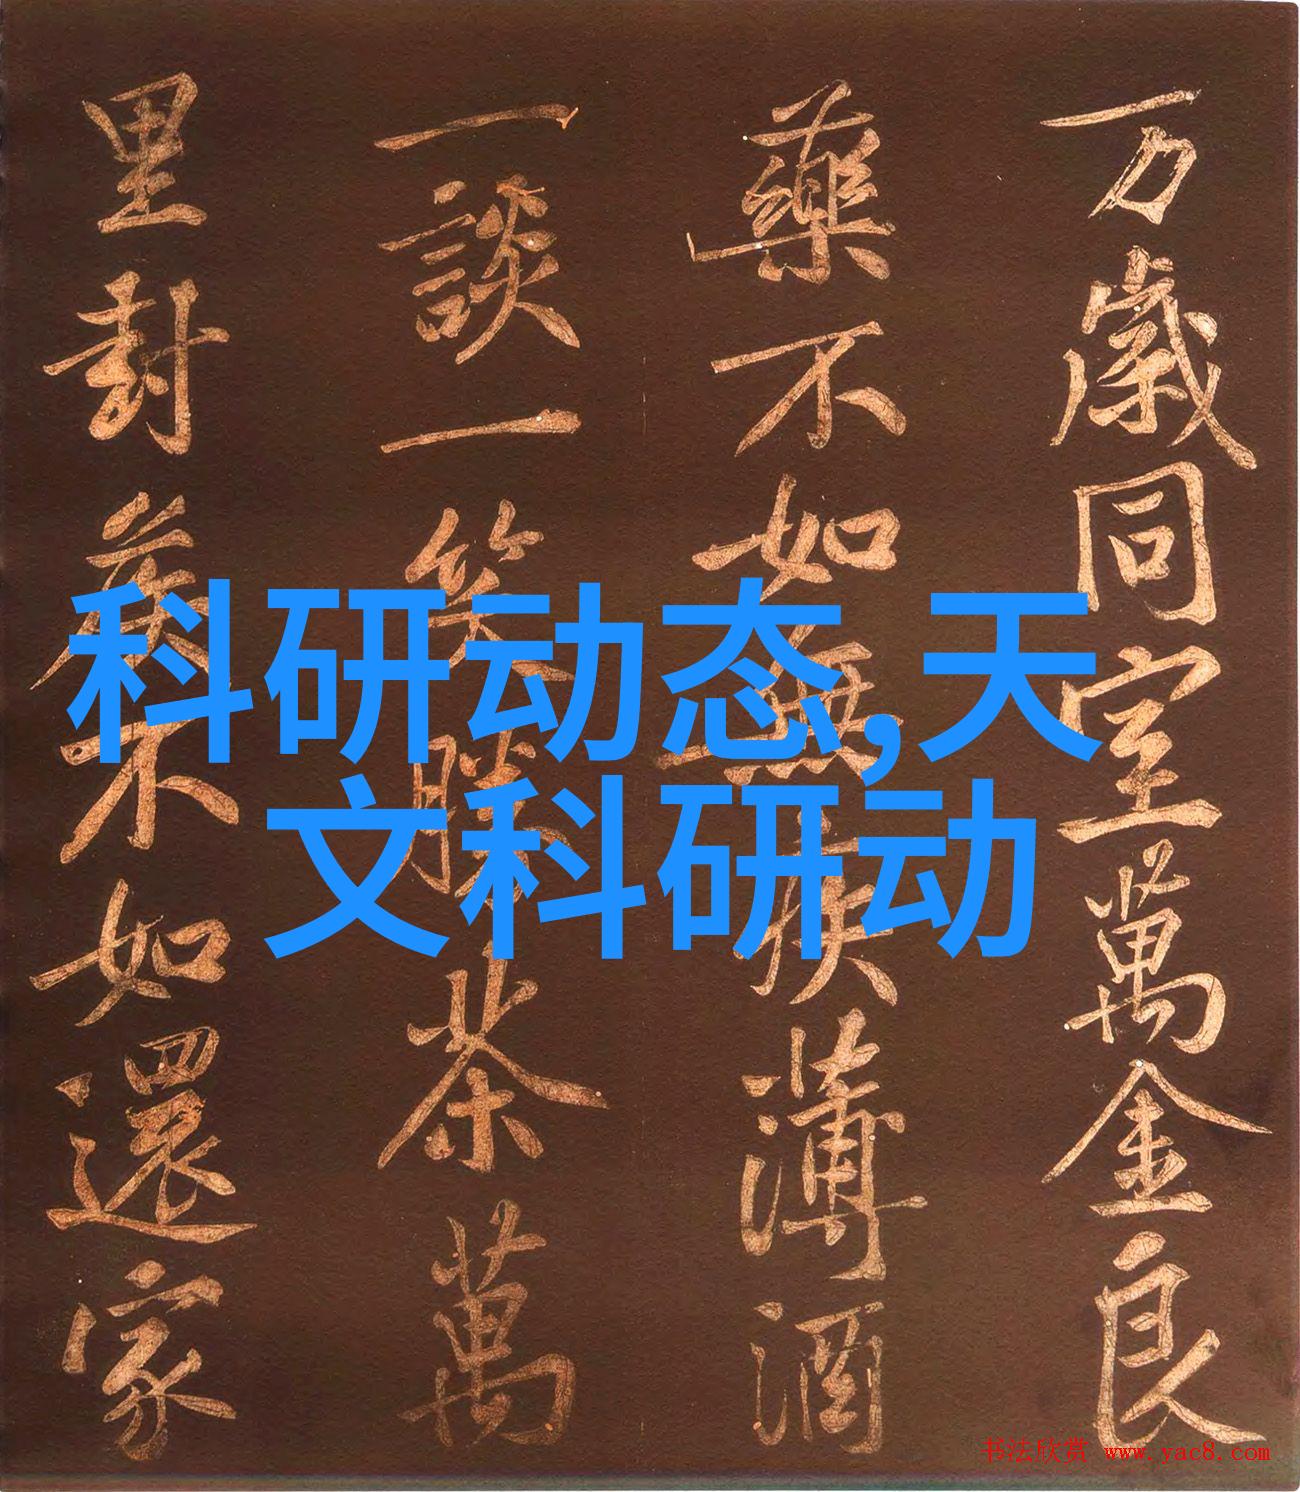 万歲同室萬金良
藥不如無疾薄酒
一談一笑勝茶萬
里封侯不如還家
科研动态,天
文科研动
书法欣赏 www.yac8.com